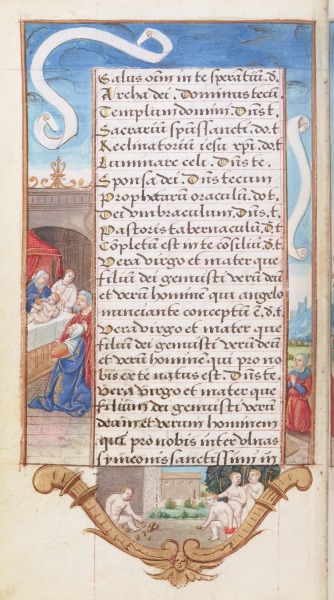 Salus oīm in te sperātiū. đ.
Archa dei. Dominus tecū.
Templum domini. Dn̄s. t.
Sacrariū sp̄ussancti. do. t
Reclinatoriū iesu xp̄i. do. t
Luminare celi. Dn̄s. te.
Sponsa dei. Dn̄s tecum
Prophetarū oraculū. do. t.
Dei vmbraculum. Dn̄s. t.
Pastoris tabernaculū. đ. t
Cōpletū est in te cōsiliū. đ. t
Vera virgo et mater que
filiū dei genuisti verū deū
et verū hominē qui angelo
nunciante conceptū ē. d. t
Vera virgo et mater que
filiū dei genuisti verū deū
et verū hominē. qui pro no
bis ex te natus est. Dn̄s. te.
Vera virgo et mater que
filium dei genuisti verū
deum et verum hominem
qui pro nobis inter vlnas
symeonis sanctissimi in